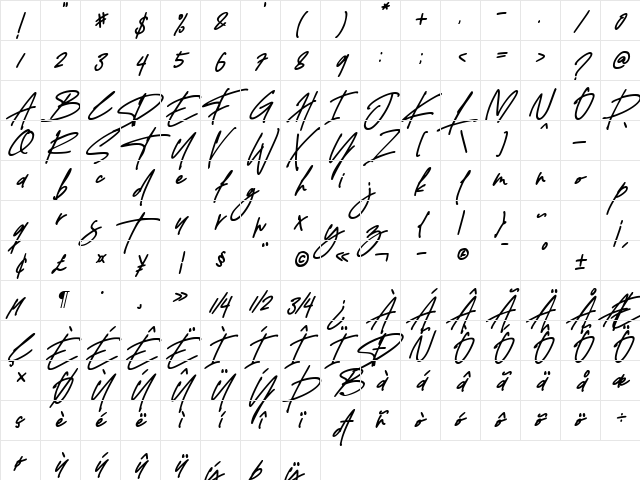 ! " # $ % & ' ( ) * + , - . / 0
1 2 3 4 5 6 7 8 9 : ; < = > ? @
A B C D E F G H I J K L M N O P
Q R S T U V W X Y Z [ \ ] ^ _ `
a b c d e f g h i j k l m n o p
q r s t u v w x y z { | } ~ ¡
¢ £ ¤ ¥ ¦ § ¨ © « ¬ - ® ¯ ° ±
µ ¶ · ¸ » 1/4 1/2 3/4 ¿ À Á Â Ã Ä Å Æ
Ç È É Ê Ë Ì Í Î Ï Ð Ñ Ò Ó Ô Õ Ö
× Ø Ù Ú Û Ü Ý Þ ß à á â ã ä å æ
ç è é ê ë ì í î ï ð ñ ò ó ô õ ö ÷
ø ù ú û ü ý þ ÿ